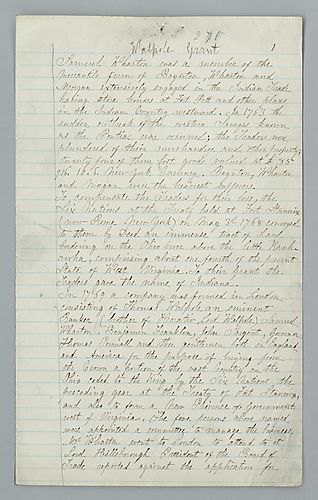 Walpole Grant 1
Samuel Wharton was a member of the
mercantile firm of Baynton, Wharton and
Morgan extensively engaged in the Indian Trade
having store houses at Fort Pitt and other places
in the Indian Country westward. In 1763 the
sudden outbreak of the western Indians known
as the Pontiac war occurred, the Traders were
plundered of their merchandise and other property
twenty four of them lost goods valued at £ 85
916. 10. 8. New York Currency. Baynton, Wharton
and Morgan were the heaviest sufferers.
To compensate the Traders for this loss, the
Six Nations at the Treaty held at Fort Stanwix
(now Rome, New York) on May 3rd 1768 conveyed
to them by Deed an immense tract of land
bordering on the Ohio river above the Little Kanh-
awha, comprising about one fourth of the present
State of West Virginia. To their grant the
Traders gave the name of Indiana.
In 1769 a company was formed in London
consisting of Thomas Walpole an eminent
Banker (brother of Lord Walpole) Samuel
Wharton, Benjamin Franklin, John Sargent, Governor
Thomas Pownall and other gentlemen both in England
and America for the purpose of buying from
the Crown a portion of the vast Country on the
Ohio ceded to the King by the Six Nations the
preceding year at the Treaty of Fort Stanwix,
and also to form a New Province or Government
west of Virginia. The five persons above named
were appointed a committee to manage the business
Mr Wharton went to London to attend to it
Lord Hillsborough President of the Board of
Trade reported against the application for